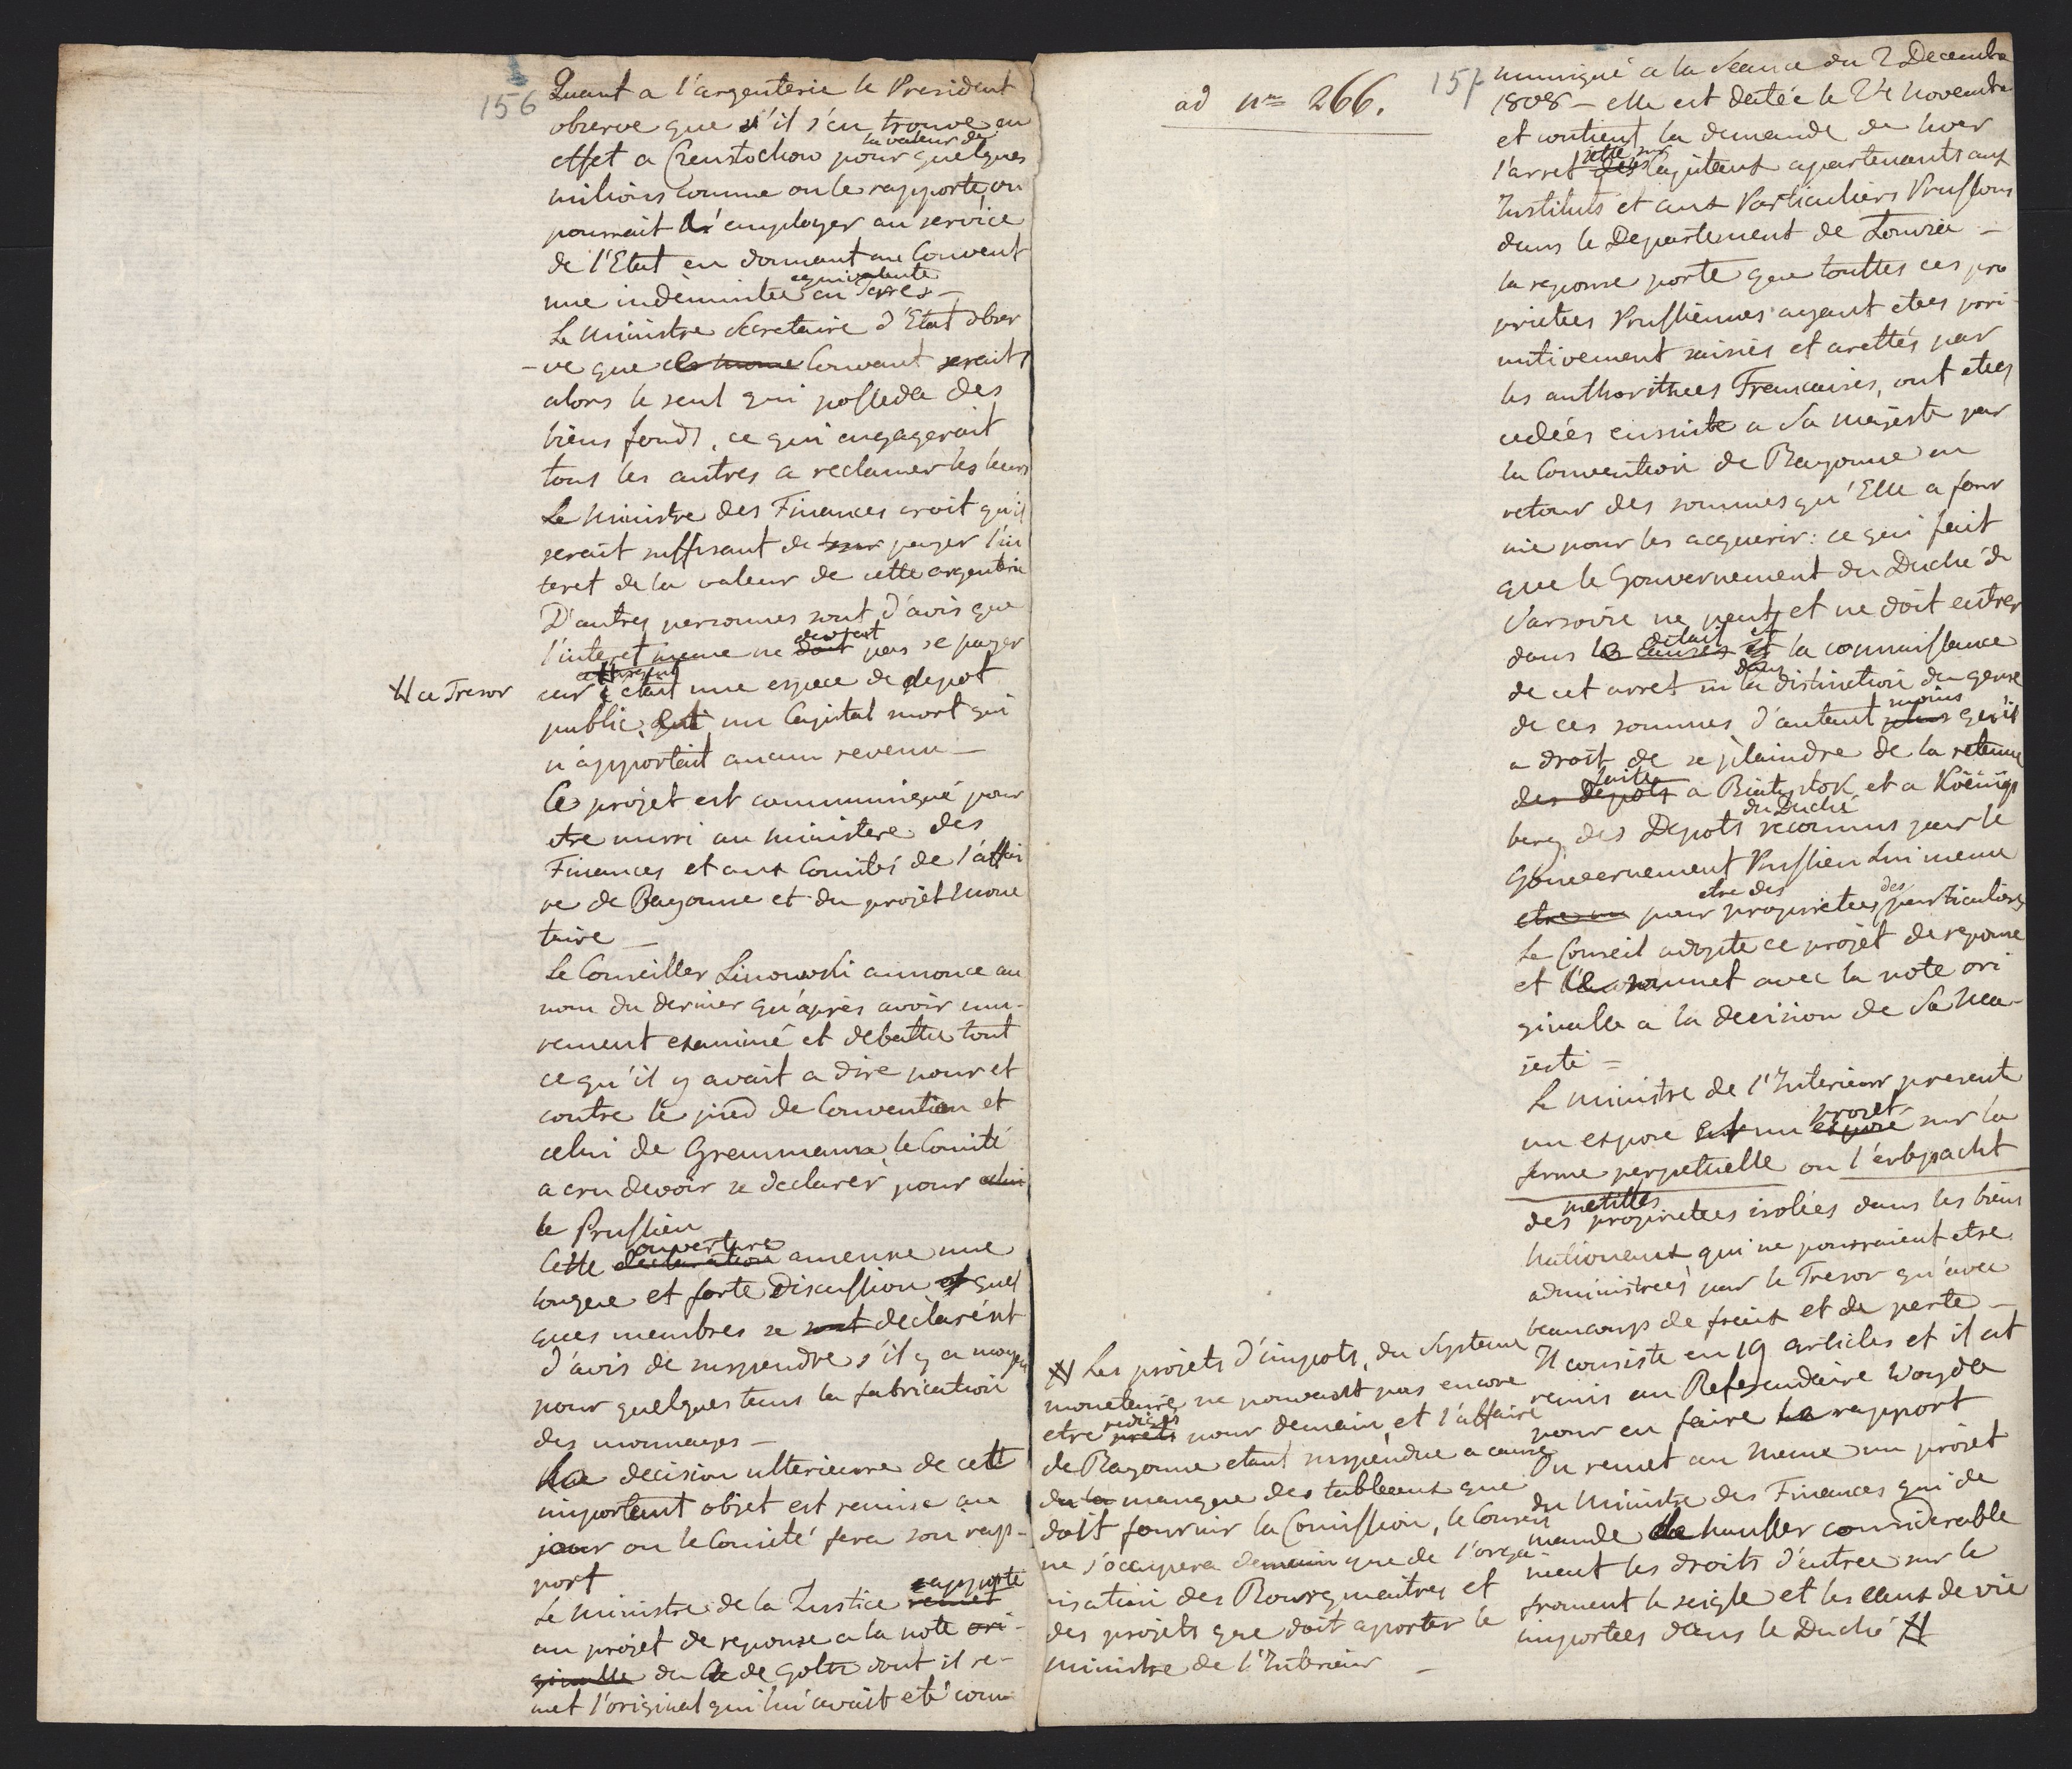 156
Quant a l'argenterie le President
observe que s'il s'en trouve en
la valeur de
effet a Czenstochow pour quelques
milions comme on le rapporte, on
pourrait l'employer au service
de l'Etat en donnant au Couvent
equivalente
une indemnitee en Terres —
Le Ministre Secretaire d'Etat obser
-ve que ce Couvant serait
alors le seul qui posseda des
biens fonds, ce qui engagerait
tous les autres a reclamer les leurs
Le Ministre des Finances croit qu'il
serait suffisant de payer l'in
teret de la valeur de cette argenterie
D'autres personnes sont d'avis que
devrait
l'interet meme ne doit pas se payer
car etant une espece de depot
# ce Tresor
public, un Capital mort qui
n'apportait aucun revenu —
Ce projet est communiqué pour
etre murri au Ministere des
Finances et aux Comités de l'affai
re de Bayonne et du projet mone
taire —
Le Conseiller Linowski annonce au
nom du dernier qu'après avoir mu-
rement examiné et debattu tout
ce qu'il y avait a dire pour et
contre le pied de Convention et
celui de Graumann, le Comité
a cru devoir se declarer pour celui
le Prussien
ouverture
Cette declaration amenne une
longue et forte Discussion et quel
ques membres se sont declarént
d'avis de suspendre s'il y a moyen
pour quelques tems la fabrication
des monnayes —
La decision ulterieure de cett
important objet est remise au
jour ou le Comité fera son rap-
port
rapporte
Le Ministre de la Justice remet
un projet de reponse a la note ori-
ginalle du de Goltz dont il re-
met l'original qui lui avait eté com
ad nrm 266.
# Les projets d'impots, du Systeme
monetaire ne pouvant pas encore
rediges
etre prets pour demain, et l'affaire
de Bayonne etant suspendue a cause
du la manque des tableaux que
doit fournir la Comission, le Conseil
ne s'ocupera demain que de l'orga
nisation des Bourgmaitres et
des projets que doit aporter le
Ministre de l'Interieur —
157
muniqué a la Seance du 2 Decembre
1808 — elle est datée le 24 novembre
et contient la demande de lever
jetté sur
l'arret des capitaux apartenants aux
Instituts et aux Particuliers Prussiens
dans le Departement de Lomza —
la reponse porte que touttes ces pro
prietees Prussiennes ayant etees pri-
mitivement saisies et arettés par
les authorithees Francaises, ont etees
cedées ensuite a Sa Majeste par
la Convention de Bayonne en
retour des sommes qu'Elle a four
nie pour les acquerir: ce qui fait
que le Gouvernement du Duché de
Varsovie ne peut et ne doit entrer
detail et
dans les causes et la connaissance
dans
de cet arret ni la distinction du genre
moins
de ces sommes, d'autant plus qu'il
a droit de se plaindre de la retenue
faitte
des depots a Bialystok et a Köenigs
du Duché
berg des Depots reconnus par le
Gouvernement Prussien lui meme
etre des des
etre un pour proprietees particulieres
Le Conseil adopte ce projet de reponse
et le soumet avec la note ori
ginalle a la decision de Sa Ma-
jesté =
Le Ministre de l'Interieur presente
projet
un expose sur un exposé sur la
ferme perpetuelle ou l'erbpacht
petittes
des proprietees isolées dans les biens
Nationaux qui ne pourraient etre
administrees par le Tresor qu'avec
beaucoup de fraix et de perte —
Il consiste en 19 articles et il est
remis au Referendaire Woyda
pour en faire le rapport
On remet au meme un projet
du Ministre des Finances qui de
mande de hausser considerable
ment les droits d'entree sur le
froment le seigle et les eaux de vie
importees dans le Duché #